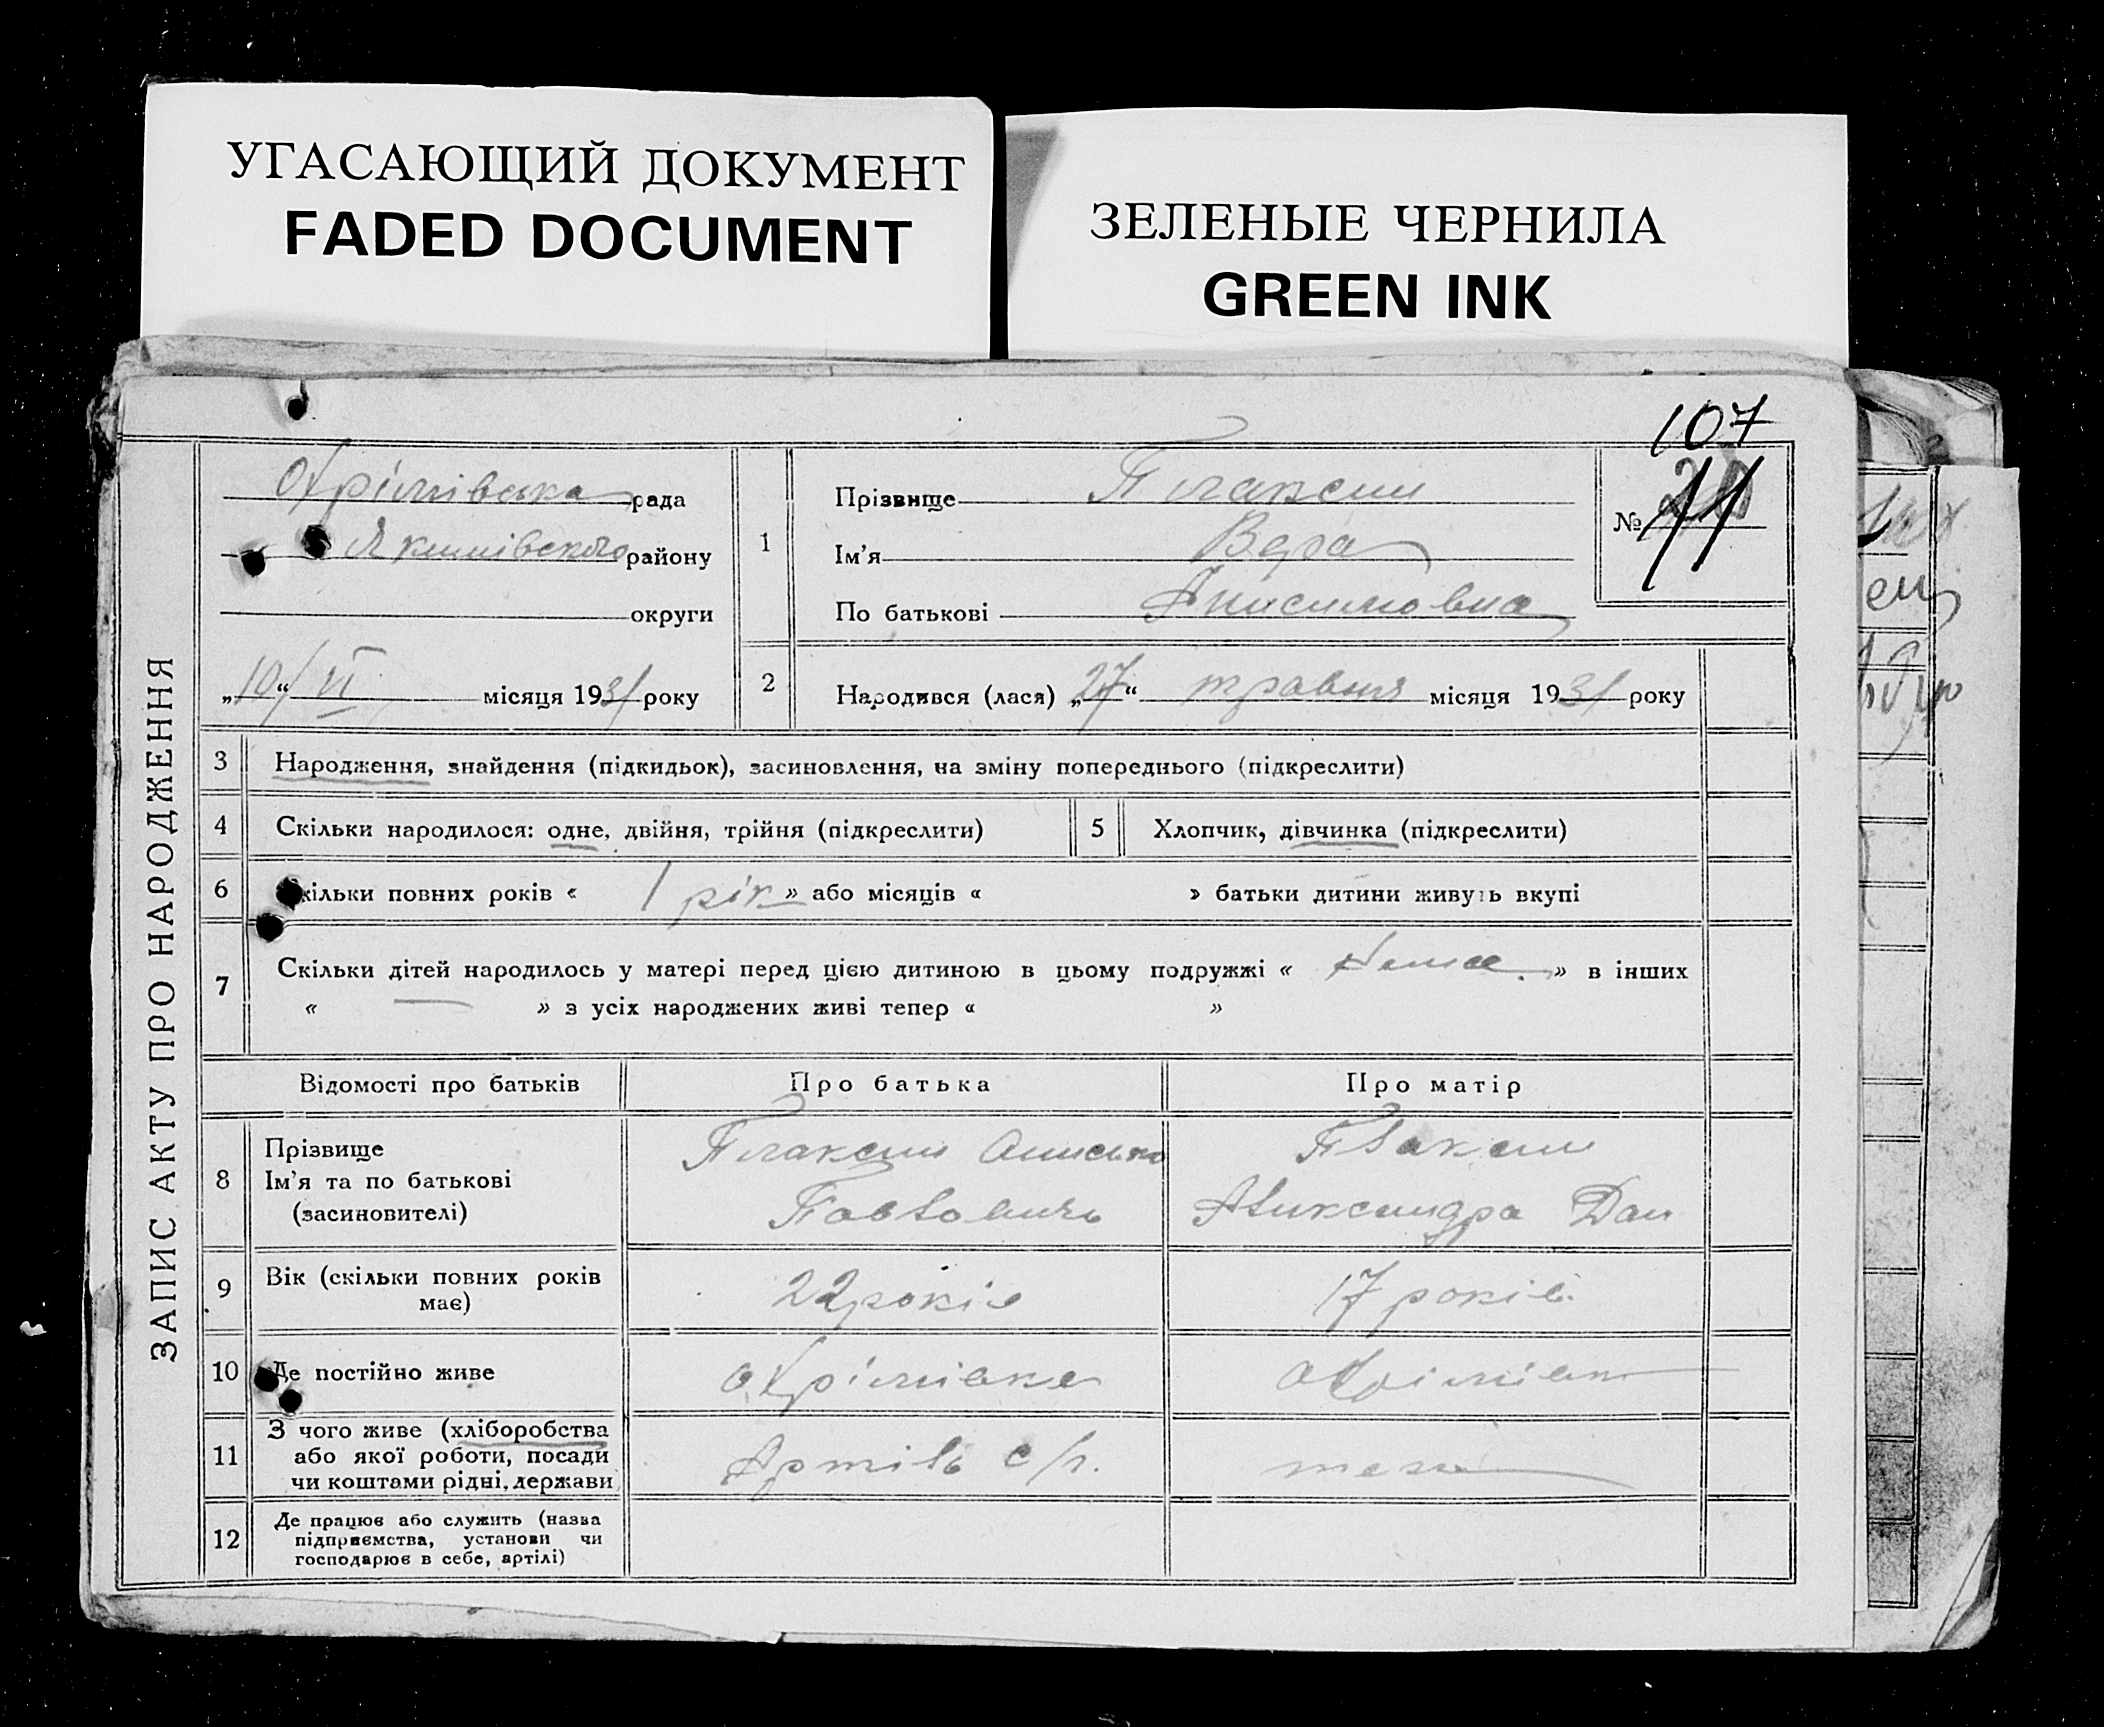 УГАСАЮЩИЙ ДОКУМЕНТ
FADED DOCUMENT
ЗЕЛЕНЫЕ ЧЕРНИЛА
GREEN INK
107
ЗАПИС АКТУ ПРО НАРОДЖЕННЯ
Охрімівська рада
Якимівського району
округи
„10“ VI місяця 1931 року
1
Прізвище Плаксин
Ім'я Вера
По батькові Анисимовна
№ 11
2
Народився (лася) „27“ травня місяця 1931 року
3 Народження, знайдення (підкидьок), засиновлення, на зміну попереднього (підкреслити)
4 Скільки народилося: одне, двійня, трійня (підкреслити)
5 Хлопчик, дівчинка (підкреслити)
6 Скільки повних років « 1 рік » або місяців « » батьки дитини живуть вкупі
7 Скільки дітей народилось у матері перед цією дитиною в цьому подружжі « Нема » в інших
« — » з усіх народжених живі тепер « »
Відомості про батьків Про батька Про матір
8
Прізвище
Ім'я та по батькові
(засиновителі)
Плаксин
Павлович
Плаксин
Александра Дан
9
Вік (скільки повних років
має)
22 років
17 років
10 Де постійно живе Охрімівка
11
З чого живе (хліборобства
або якої роботи, посади
чи коштами рідні, держави
Артіль с/г.
теж
12
Де працює або служить (назва
підприємства, установи чи
господарює в себе, артілі)